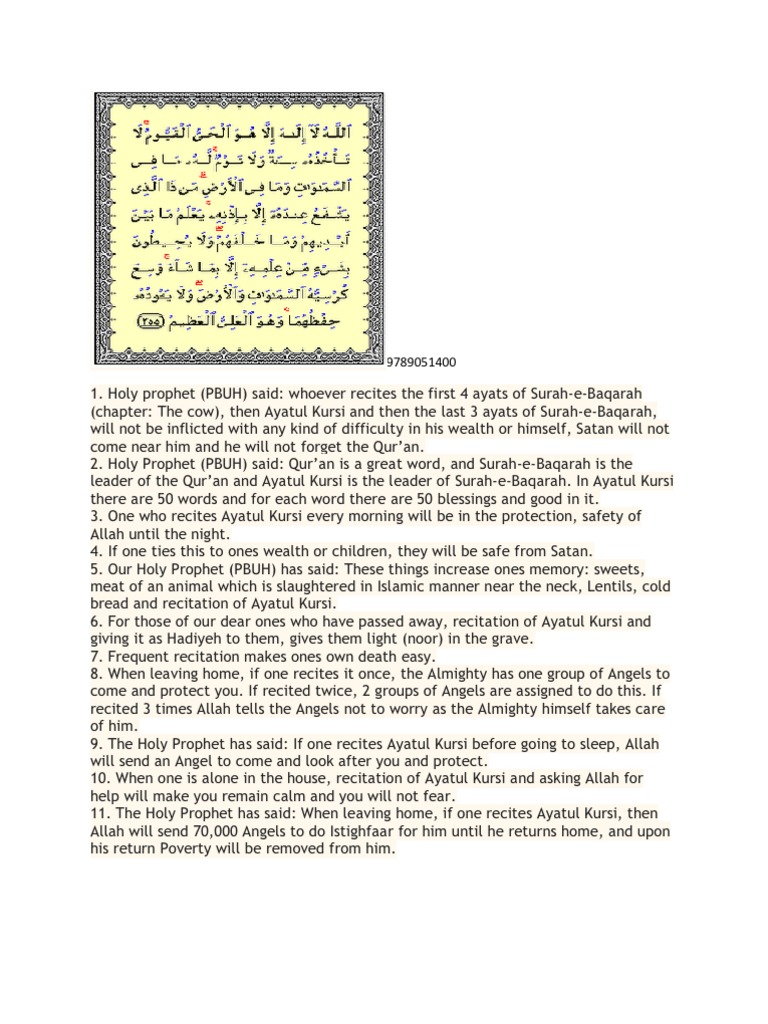 اللَّهُ لَآ إِلَٰهَ إِلَّا هُوَ الْحَىُّ الْقَيُّومُ ۚ لَا
تَأْخُذُهُۥ سِنَةٌ وَلَا نَوْمٌ ۚ لَّهُۥ مَا فِى
السَّمَٰوَٰتِ وَمَا فِى الْأَرْضِ ۗ مَن ذَا الَّذِى
يَشْفَعُ عِندَهُۥٓ إِلَّا بِإِذْنِهِۦ ۚ يَعْلَمُ مَا بَيْنَ
أَيْدِيهِمْ وَمَا خَلْفَهُمْ ۖ وَلَا يُحِيطُونَ
بِشَىْءٍ مِّنْ عِلْمِهِۦٓ إِلَّا بِمَا شَآءَ ۚ وَسِعَ
كُرْسِيُّهُ السَّمَٰوَٰتِ وَالْأَرْضَ ۖ وَلَا يَـُٔودُهُۥ
حِفْظُهُمَا ۚ وَهُوَ الْعَلِىُّ الْعَظِيمُ ﴿٢٥٥﴾
9789051400
1. Holy prophet (PBUH) said: whoever recites the first 4 ayats of Surah-e-Baqarah
(chapter: The cow), then Ayatul Kursi and then the last 3 ayats of Surah-e-Baqarah,
will not be inflicted with any kind of difficulty in his wealth or himself, Satan will not
come near him and he will not forget the Qur’an.
2. Holy Prophet (PBUH) said: Qur’an is a great word, and Surah-e-Baqarah is the
leader of the Qur’an and Ayatul Kursi is the leader of Surah-e-Baqarah. In Ayatul Kursi
there are 50 words and for each word there are 50 blessings and good in it.
3. One who recites Ayatul Kursi every morning will be in the protection, safety of
Allah until the night.
4. If one ties this to ones wealth or children, they will be safe from Satan.
5. Our Holy Prophet (PBUH) has said: These things increase ones memory: sweets,
meat of an animal which is slaughtered in Islamic manner near the neck, Lentils, cold
bread and recitation of Ayatul Kursi.
6. For those of our dear ones who have passed away, recitation of Ayatul Kursi and
giving it as Hadiyeh to them, gives them light (noor) in the grave.
7. Frequent recitation makes ones own death easy.
8. When leaving home, if one recites it once, the Almighty has one group of Angels to
come and protect you. If recited twice, 2 groups of Angels are assigned to do this. If
recited 3 times Allah tells the Angels not to worry as the Almighty himself takes care
of him.
9. The Holy Prophet has said: If one recites Ayatul Kursi before going to sleep, Allah
will send an Angel to come and look after you and protect.
10. When one is alone in the house, recitation of Ayatul Kursi and asking Allah for
help will make you remain calm and you will not fear.
11. The Holy Prophet has said: When leaving home, if one recites Ayatul Kursi, then
Allah will send 70,000 Angels to do Istighfaar for him until he returns home, and upon
his return Poverty will be removed from him.